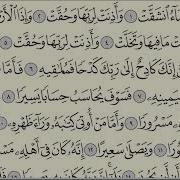 مَآءُ ٱنشَقَّتْ ١ وَأَذِنَتْ لِرَبِّهَا وَحُقَّتْ ٢ وَإِذَا ٱلْأَرْ
مَا فِيهَا وَتَخَلَّتْ ٤ وَأَذِنَتْ لِرَبِّهَا وَحُقَّتْ ٥
إِنَّكَ كَادِحٌ إِلَىٰ رَبِّكَ كَدْحًا فَمُلَٰقِيهِ ٦ فَأَمَّا
يَمِينِهِۦ ٧ فَسَوْفَ يُحَاسَبُ حِسَابًا يَسِيرًا ٨
مَسْرُورًا ٩ وَأَمَّا مَنْ أُوتِىَ كِتَٰبَهُۥ وَرَآءَ ظَهْرِهِ
١١ وَيَصْلَىٰ سَعِيرًا ١٢ إِنَّهُۥ كَانَ فِىٓ أَهْلِهِۦ